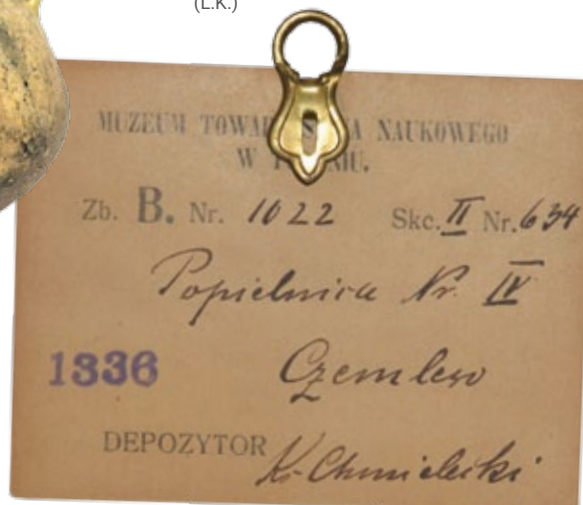 (L.K.)
MUZEUM TOWAR S A NAUKOWEGO
W T NIU.
Zb. B. Nr. 1022 Skc. II Nr. 634
Popielnica Nr. IV
1336 Czemlewo
DEPOZYTOR K. Chmielecki